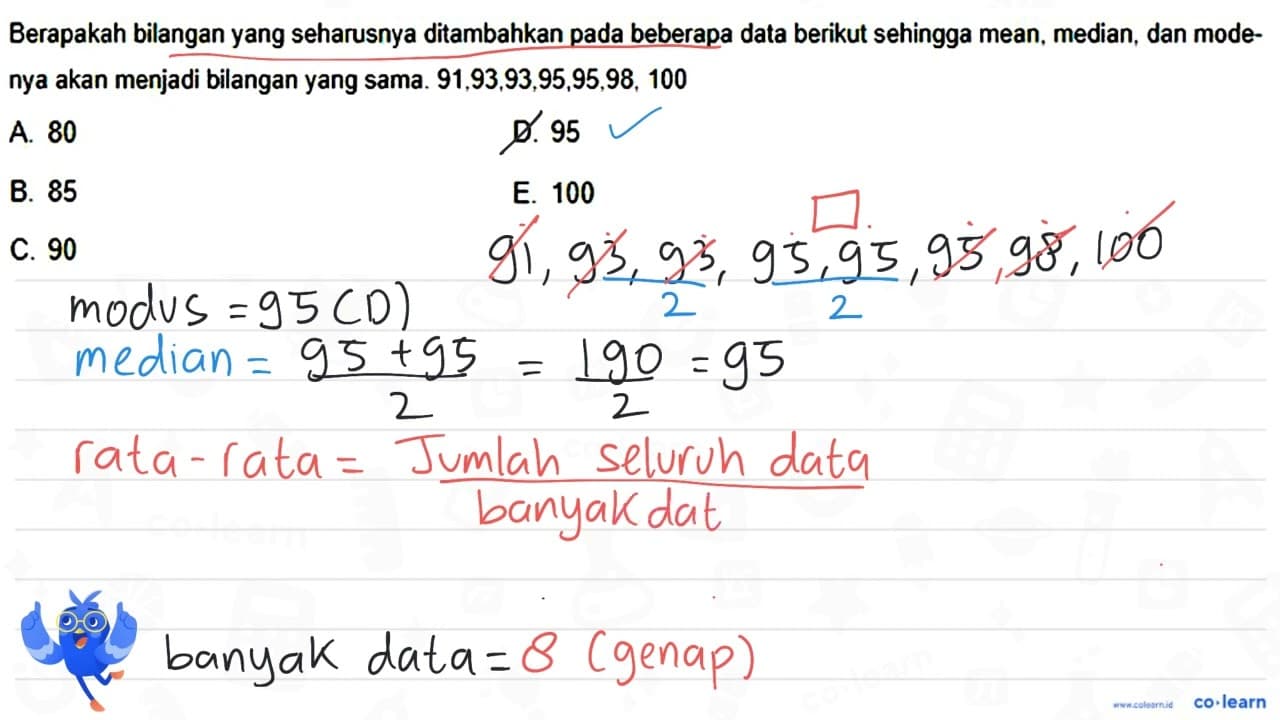 Berapakah bilangan yang seharusnya ditambahkan pada beberapa data berikut sehingga mean, median, dan mode-
nya akan menjadi bilangan yang sama. 91,93,93,95,95,98, 100
A. 80
D. 95
B. 85
E. 100
C. 90
91, 93, 93, 95, 95, 95, 98, 100
2 2
modus = 95 (D)
median = 95 + 95 / 2 = 190 / 2 = 95
rata - rata = Jumlah seluruh data
banyak dat
banyak data = 8 (genap)
www.colearn.id co·learn